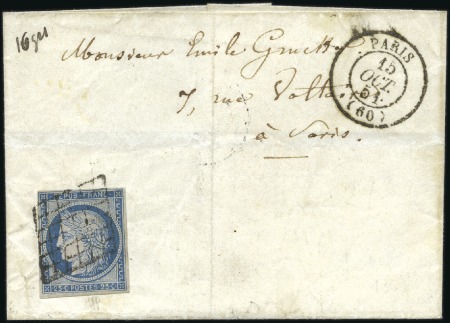 16 gr
Monsieur Emile
7, rue
à Paris.
PARIS
15
OCT.
51
(60)
REPUB. FRANC.
25 C POSTES 25 C